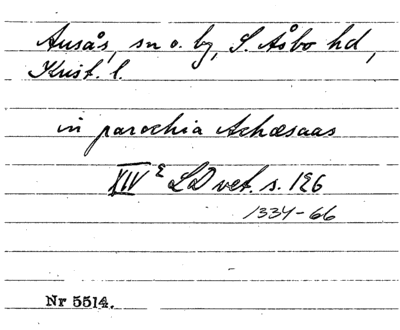 Ausås, sn o. by, S. Åsbo hd,
Krist. l.
in parochia Achæsaas
XIV 2 LD vet. s. 126
1334-66
Nr 5514.